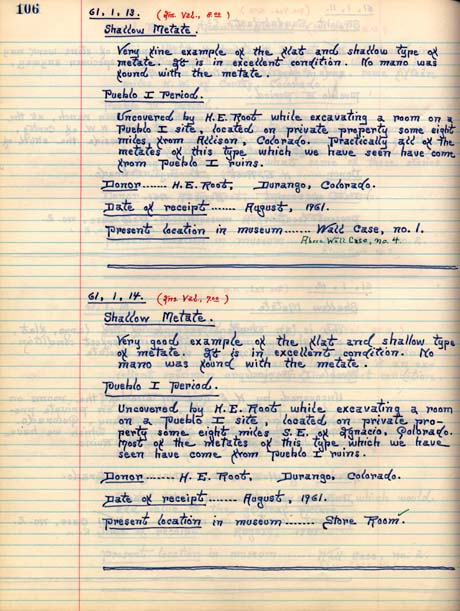 106
61.1.13. (Ins. Val., 8.00)
Shallow Metate.
Very fine example of the flat and shallow type of
metate. It is in excellent condition. No mano was
found with the metate.
Pueblo I Period.
Uncovered by H.E. Root while excavating a room on a
Pueblo I site, located on private property some eight
miles from Allison, Colorado. Practically all of the
metates of this type which we have seen have come
from Pueblo I ruins.
Donor ------ H.E. Root, Durango, Colorado.
Date of receipt ------ August, 1961.
Present location in museum ------ Wall Case, no. 1.
Above Wall Case, no. 4.
61.1.14. (Ins. Val., 7.50)
Shallow Metate.
Very good example of the flat and shallow type
of metate. It is in excellent condition. No
mano was found with the metate.
Pueblo I Period.
Uncovered by H.E. Root while excavating a room
on a Pueblo I site, located on private pro-
perty some eight miles S.E. of Ignacio, Colorado.
Most of the metates of this type which we have
seen have come from Pueblo I ruins.
Donor ------ H.E. Root, Durango, Colorado.
Date of receipt ------ August, 1961.
Present location in museum ------ Store Room.